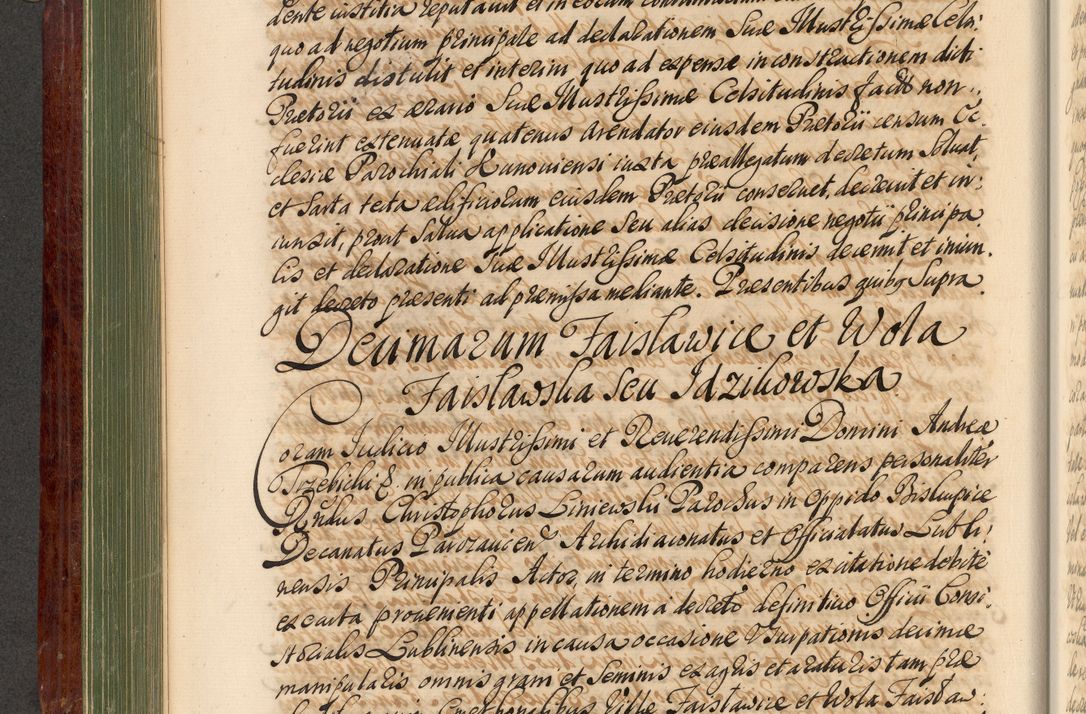 dente iustitia reputavit et in eorum
quo ad negotium principale ad declarationem Suæ Illustrissimæ Celsi-
tudinis distulit et interim quo ad expensæ in constructionem dicti
Prætorii ex ærario Suæ Illustrissimæ Celsitudinis facto non
fuerint extenuatæ quatenus Arendator eiusdem Prætorii censum Ec-
clesiæ Parochiali Kunoviensi iuxta præallegatum decretum solvat
et Sarta tecta ædificiorum eiusdem Prætorii conservet, decrevit et in-
iunxit, prout salva applicatione seu alias decisione negotii principa
lis et declaratione Suæ Illustrissimæ Celsitudinis decernit et iniun-
git decreto præsenti ad præmissa mediante. Præsentibus quibus Supra.
Decimarum Faisławice et Wola
Faisławska seu Idzikowska
Coram Iudicio Illustrissimi et Reverendissimi Domini Andreæ
Trzebicki &. in publica causarum audientia comparens personaliter
Rndus Christophorus Liniewski Parochus in Oppido Biskupice
Decanatus Parczovien Archidiaconatus et Officialatus Lubli-
nensis Principalis Actor, in termino hodierno ex citatione debite
executa provenienti appellationem a decreto definitivo Officii Consi-
storialis Lublinensis in causa occasione Usurpationis decimæ
manipularis omnis grani et Seminis ex agris et araturis tam præ
Cmethonalibus Villæ Faisławice et Wola Faisław-